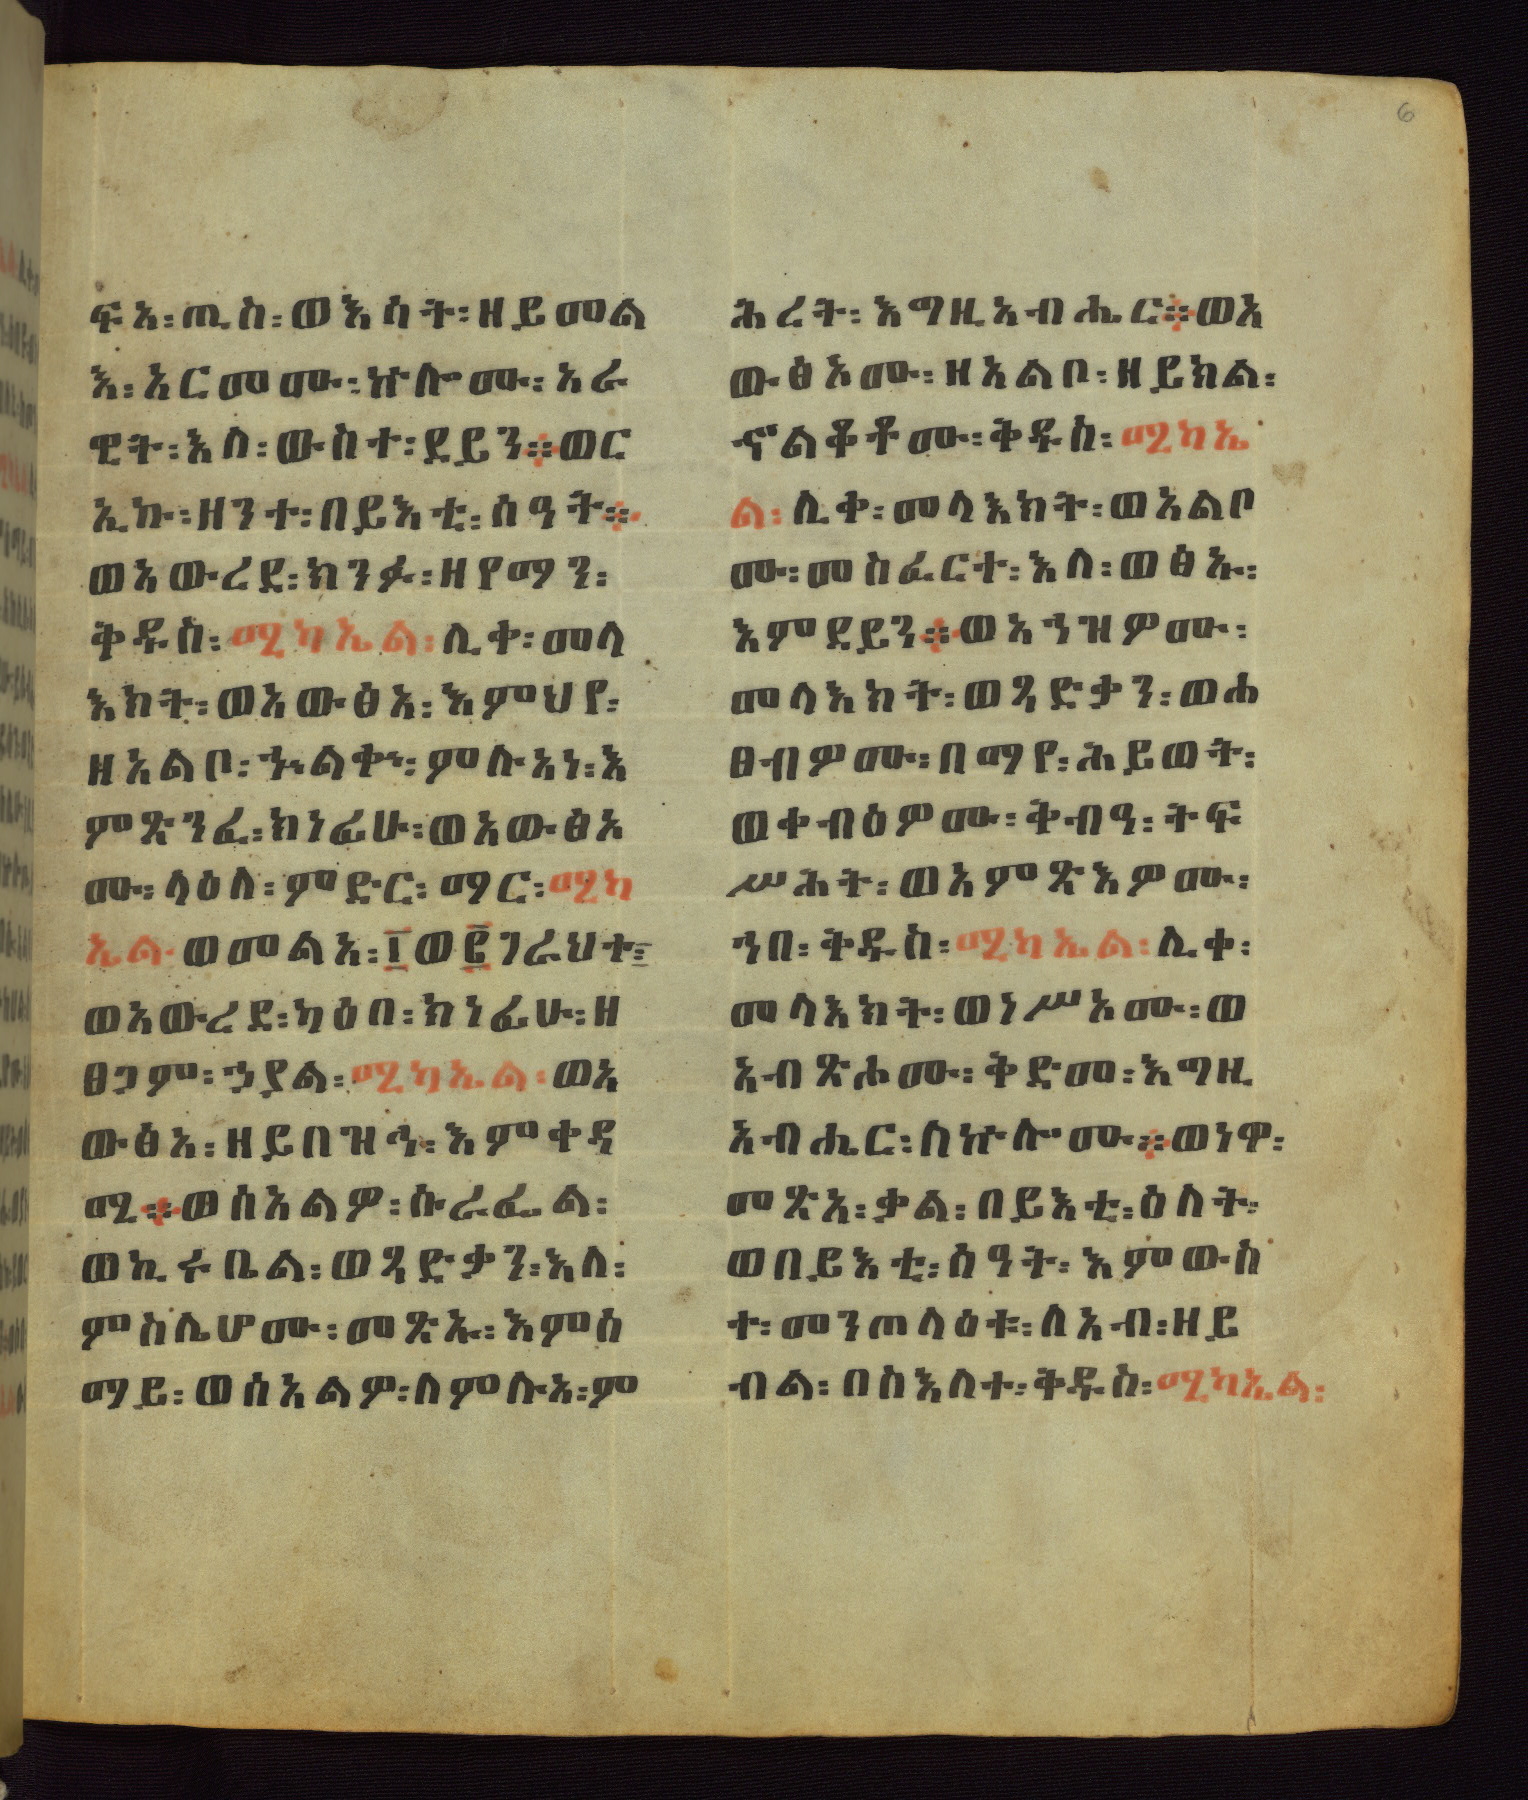 6
ፍአ፡ጢስ፡ወእሳት፡ዘይመል
እ፡አርመሙ፡ኵሎሙ፡አራ
ዊት፡እለ፡ውስተ፡ደይን፨ወር
ኢኩ፡ዘንተ፡በይእቲ፡ሰዓት፨
ወአውረደ፡ክንፉ፡ዘየማን፡
ቅዱስ፡ሚካኤል፡ሊቀ፡መላ
እክት፡ወአውፅአ፡እምህየ፡
ዘአልቦ፡ኍልቍ፡ምሉአነ፡እ
ምጽንፈ፡ክነፊሁ፡ወአውፅአ
ሙ፡ላዕለ፡ምድር፡ማር፡ሚካ
ኤል፡ወመልአ፡፲ወ፪ገራህተ፡
ወአውረደ፡ካዕበ፡ክነፊሁ፡ዘ
ፀጋም፡ኃያል፡ሚካኤል፡ወአ
ውፅአ፡ዘይበዝኅ፡እምቀዳ
ሚ፨ወሰአልዎ፡ሱራፌል፡
ወኪሩቤል፡ወጻድቃን፡እለ፡
ምስሌሆሙ፡መጽኡ፡እምሰ
ማይ፡ወሰአልዎ፡ለምሉአ፡ም
ሕረት፡እግዚአብሔር፨ወአ
ውፅአሙ፡ዘአልቦ፡ዘይክል፡
ኆልቆቶሙ፡ቅዱስ፡ሚካኤ
ል፡ሊቀ፡መላእክት፡ወአልቦ
ሙ፡መስፈርተ፡እለ፡ወፅኡ፡
እምደይን፨ወአኅዝዎሙ፡
መላእክት፡ወጻድቃን፡ወሐ
ፀብዎሙ፡በማየ፡ሕይወት፡
ወቀብዕዎሙ፡ቅብዓ፡ትፍ
ሥሕት፡ወአምጽእዎሙ፡
ኀበ፡ቅዱስ፡ሚካኤል፡ሊቀ፡
መላእክት፡ወነሥአሙ፡ወ
አብጽሐሙ፡ቅድመ፡እግዚ
አብሔር፡ለኵሎሙ፨ወነዋ፡
መጽአ፡ቃል፡በይእቲ፡ዕለት፡
ወበይእቲ፡ሰዓት፡እምውስ
ተ፡መንጠላዕቱ፡ለአብ፡ዘይ
ብል፡በስእለተ፡ቅዱስ፡ሚካኤል፡